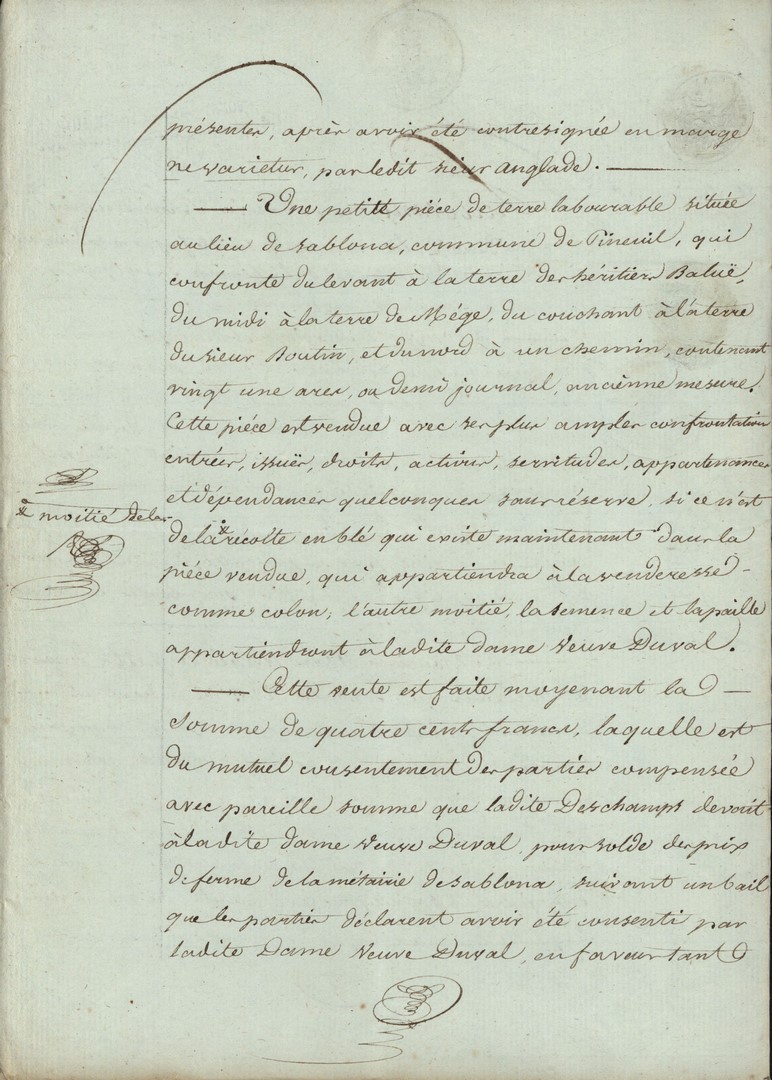 présentes, après avoir été contresignée en marge
ne varietur, par ledit sieur Anglade.
Une petite piéce de terre labourable située
au lieu de Sablona, commune de Pineuil, qui
confronte du levant à la terre des héritiers Baluë,
du midi à la terre de Mége, du couchant à la terre
du sieur Boutin, et du nord à un chemin, contenant
vingt une ares, ou demi journal, anciènne mesure.
Cette piéce est vendue avec ses plus amples confrontation
entrées, issuës, droits, actives, servitudes, appartenances
et dépendances quelconques sans réserve, si ce n'est
* moitié de la
de la * récolte en blé qui existe maintenant dans la
piéce vendue, qui appartiendra à la venderesse
comme colon; l'autre moitié, la semence et la paille
appartiendront à ladite dame veuve Duval.
Cette vente est faite moyenant la
somme de quatre cents francs, laquelle est
du mutuel consentement des parties compensée
avec pareille somme que ladite Deschamps devait
à ladite dame veuve Duval, pour solde des prix
de ferme de la métairie de Sablona, suivant un bail
que les parties déclarent avoir été consenti par
ladite Dame veuve Duval, en faveur tant